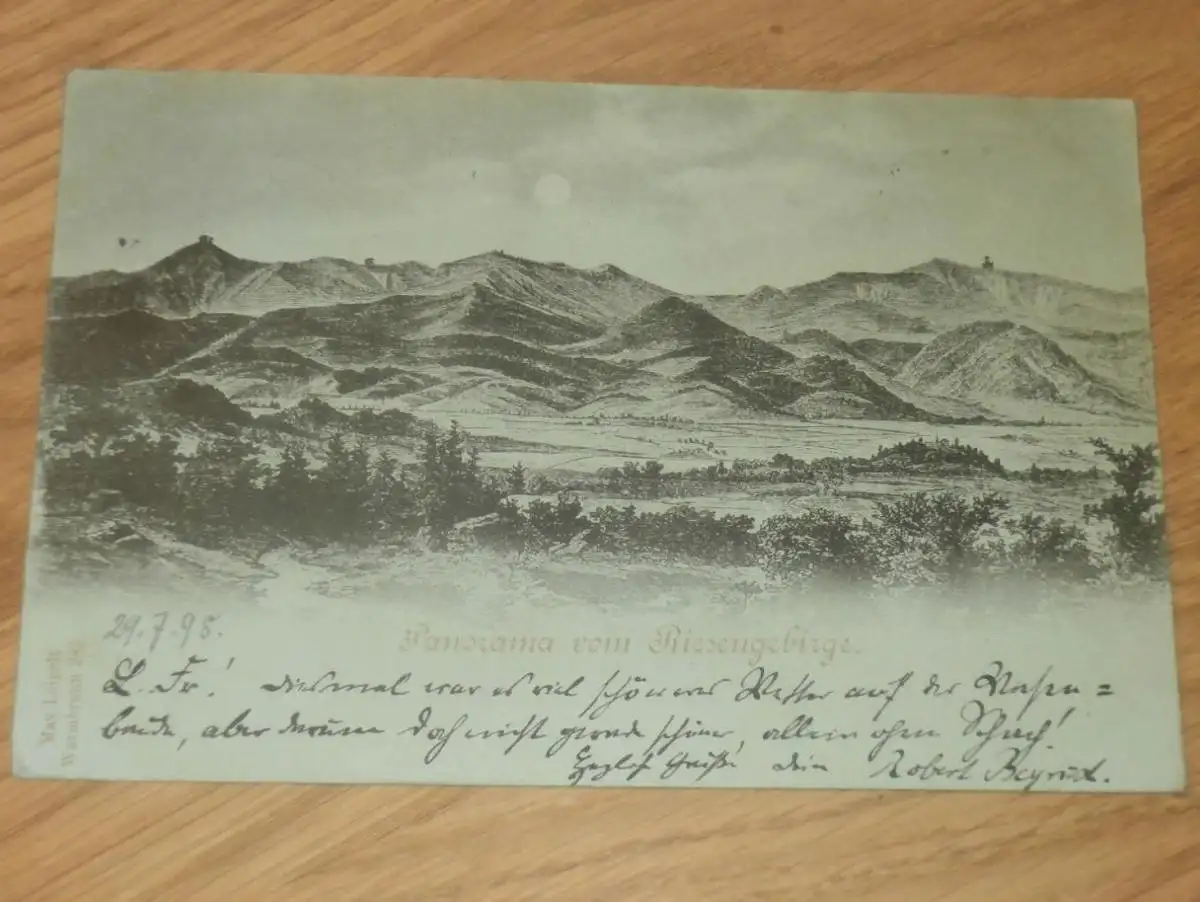 29.7.98.
Panorama vom Riesengebirge.
L. Fr! Diesmal war es viel schöneres Wetter auf der
baude, aber darum doch nicht gerade schöner, allein ohne
Herzlich Grüße! Dein Robert
Max Leipelt
Warmbrunn